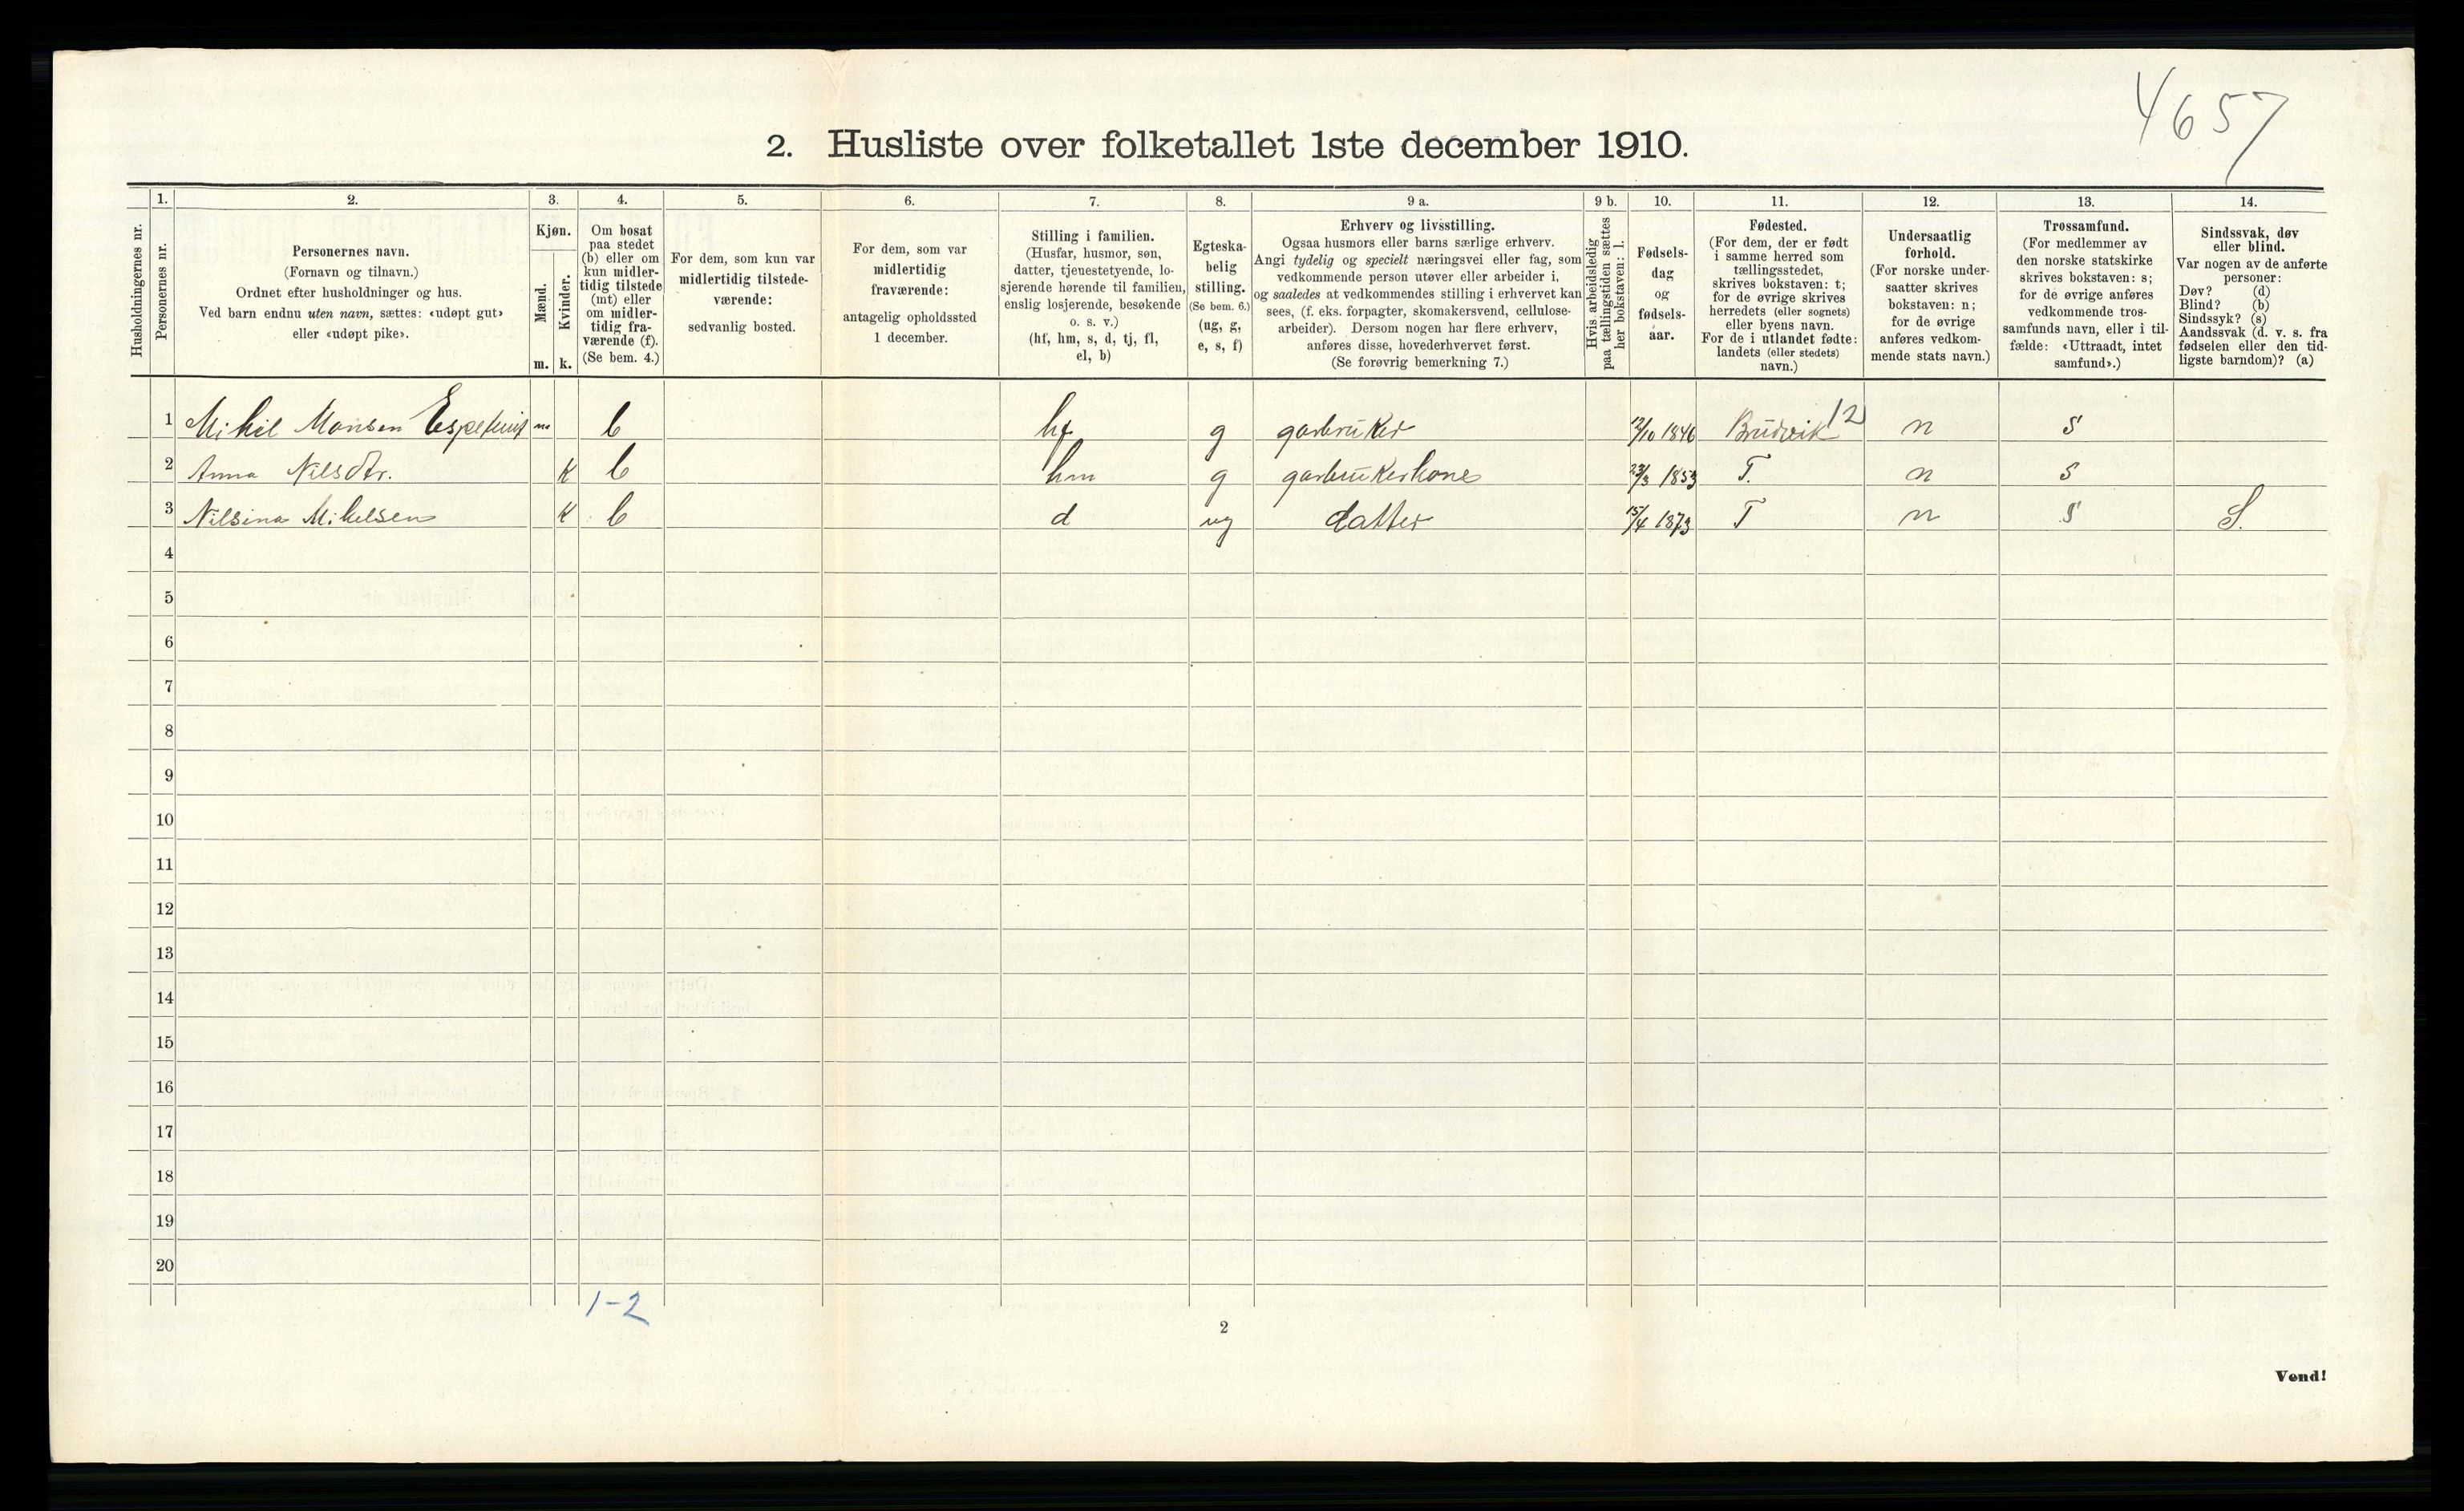 4657
2. Husliste over folketallet 1ste december 1910.
Husholdningernes nr.
1.
Personernes nr.
2.
Personernes navn.
(Fornavn og tilnavn.)
Ordnet efter husholdninger og hus.
Ved barn endnu uten navn, sættes: «udøpt gut»
eller «udøpt pike».
3.
Kjøn.
Mænd.
m.
Kvinder.
k.
4.
Om bosat
paa stedet
(b) eller om
kun midler-
tidig tilstede
(mt) eller
om midler-
tidig fra-
værende (f).
(Se bem. 4.)
5.
For dem, som kun var
midlertidig tilstede-
værende:
sedvanlig bosted.
6.
For dem, som var
midlertidig
fraværende:
antagelig opholdssted
1 december.
7.
Stilling i familien.
(Husfar, husmor, søn,
datter, tjenestetyende, lo-
sjerende hørende til familien,
enslig losjerende, besøkende
o. s. v.)
(hf, hm, s, d, tj, fl,
el, b)
8.
Egteska-
belig
stilling.
(Se bem. 6.)
(ug, g,
e, s, f)
9 a.
Erhverv og livsstilling.
Ogsaa husmors eller barns særlige erhverv.
Angi tydelig og specielt næringsvei eller fag, som
vedkommende person utøver eller arbeider i,
og saaledes at vedkommendes stilling i erhvervet kan
sees, (f. eks. forpagter, skomakersvend, cellulose-
arbeider). Dersom nogen har flere erhverv,
anføres disse, hovederhvervet først.
(Se forøvrig bemerkning 7.)
9 b.
Hvis arbeidsledig
paa tællingstiden sættes
her bokstaven: l.
10.
Fødsels-
dag
og
fødsels-
aar.
11.
Fødested.
(For dem, der er født
i samme herred som
tællingsstedet,
skrives bokstaven: t;
for de øvrige skrives
herredets (eller sognets)
eller byens navn.
For de i utlandet fødte:
landets (eller stedets)
navn.)
12.
Undersaatlig
forhold.
(For norske under-
saatter skrives
bokstaven: n;
for de øvrige
anføres vedkom-
mende stats navn.)
13.
Trossamfund.
(For medlemmer av
den norske statskirke
skrives bokstaven: s;
for de øvrige anføres
vedkommende tros-
samfunds navn, eller i til-
fælde: «Uttraadt, intet
samfund».)
14.
Sindssvak, døv
eller blind.
Var nogen av de anførte
personer:
Døv? (d)
Blind? (b)
Sindssyk? (s)
Aandssvak (d. v. s. fra
fødselen eller den tid-
ligste barndom)? (a)
1 Mikil Monsen m b hf g garbruker 1846 Brudvik 12 n s
2 Anna Nilsdtr. k b hm g garbrukerkone 23/3 1853 T. n s
3 Nilsina Mikelsen k b d ug datter 15/4 1873 T n s S.
4
5
6
7
8
9
10
11
12
13
14
15
16
17
18
19
20
1-2
2
Vend!